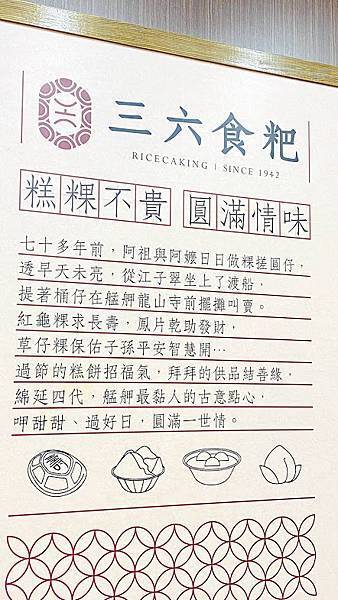 三六食粑
RICECAKING | SINCE 1942
糕粿不貴 圓滿情味
七十多年前，阿祖與阿嬤日日做粿搓圓仔，
透早天未亮，從江子翠坐上了渡船，
提著桶仔在艋舺龍山寺前擺攤叫賣。
紅龜粿求長壽，鳳片乾助發財，
草仔粿保佑子孫平安智慧開⋯
過節的糕餅招福氣，拜拜的供品結善緣，
綿延四代，艋舺最黏人的古意點心，
呷甜甜、過好日，圓滿一世情。